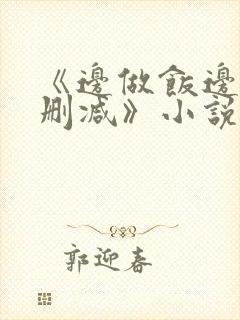 《邊做飯邊
刪减》小說
郭迎春